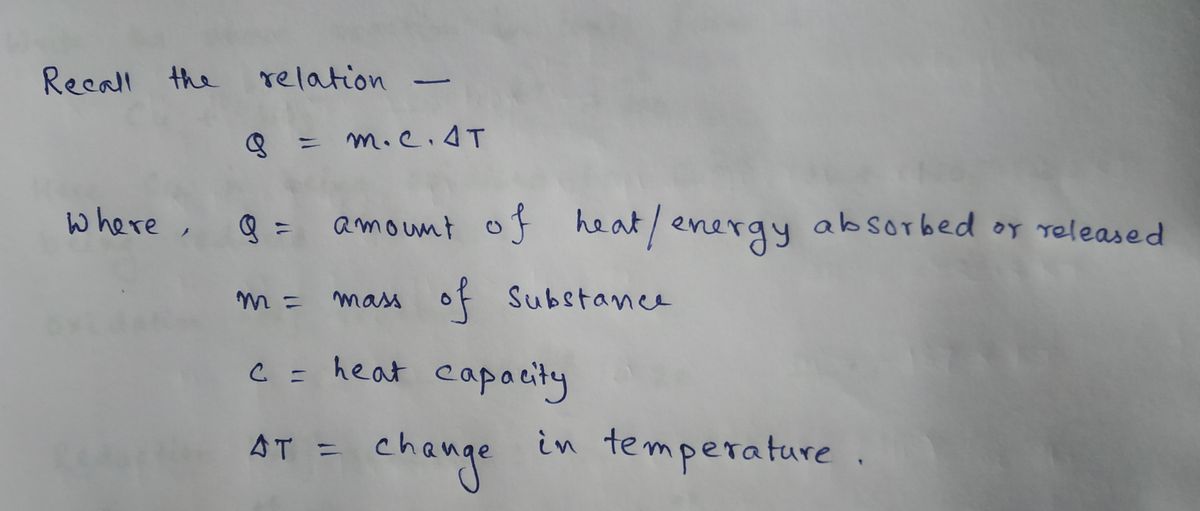 Recall the relation —
Q = m.c.ΔT
Where, Q = amount of heat/energy absorbed or released
m = mass of substance
c = heat capacity
ΔT = change in temperature.